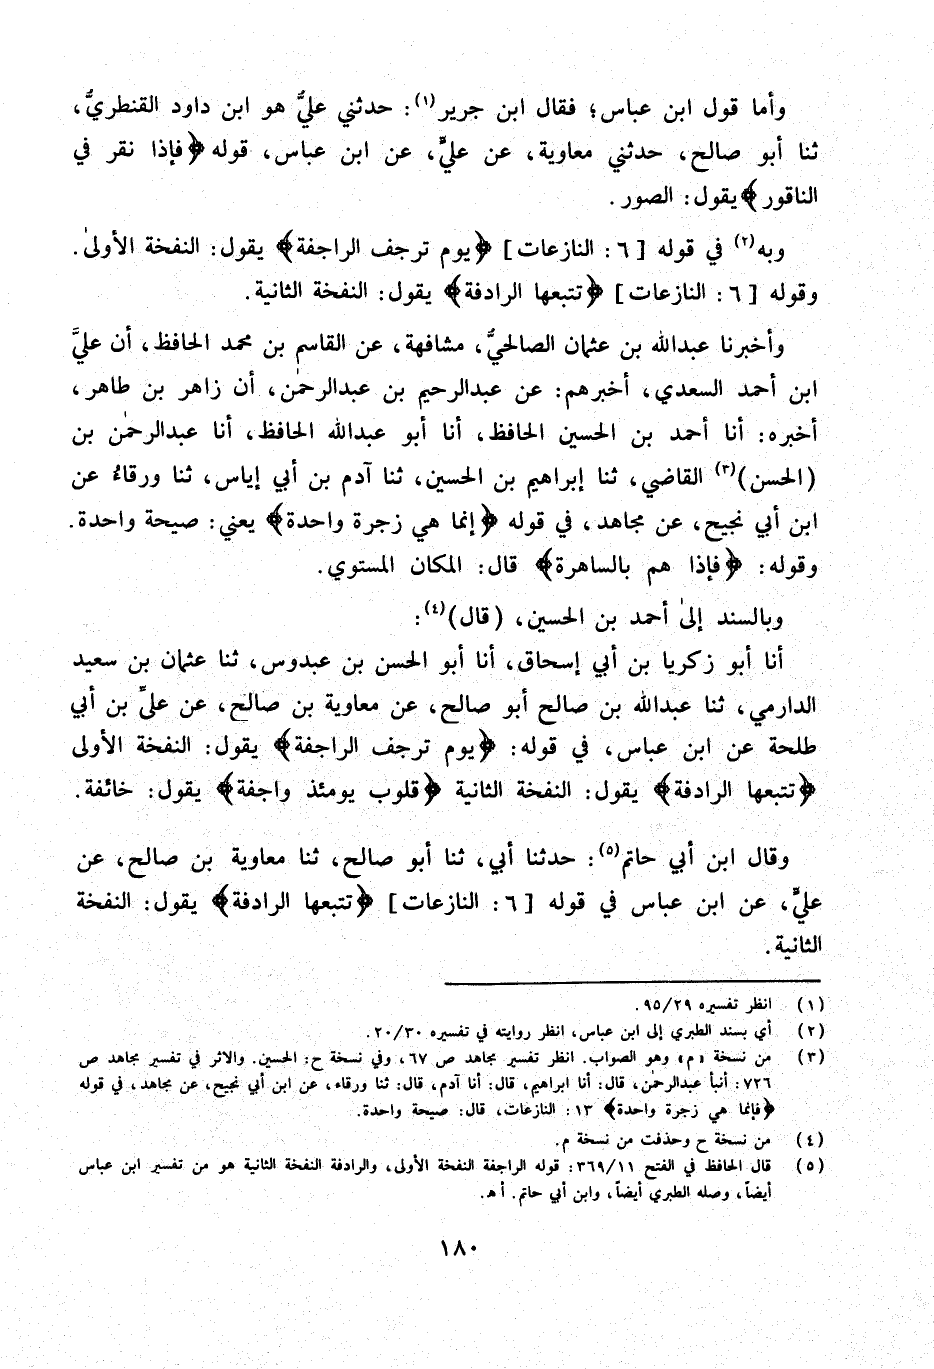 وأما قول ابن عباس؛ فقال ابن جرير(١): حدثني عليُّ هو ابن داود القنطريُّ،
ثنا أبو صالح، حدثني معاوية، عن عليٍّ، عن ابن عباس، قوله ﴿فإذا نقر في
الناقور﴾ يقول: الصور.
وبه(٢) في قوله [٦: النازعات] ﴿يوم ترجف الراجفة﴾ يقول: النفخة الأولىٰ.
وقوله [٦: النازعات] ﴿تتبعها الرادفة﴾ يقول: النفخة الثانية.
وأخبرنا عبدالله بن عثمان الصالحيُّ، مشافهة، عن القاسم بن محمد الحافظ، أن عليَّ
ابن أحمد السعدي، أخبرهم: عن عبدالرحيم بن عبدالرحمٰن، أن زاهر بن طاهر،
أخبره: أنا أحمد بن الحسين الحافظ، أنا أبو عبدالله الحافظ، أنا عبدالرحمٰن بن
(الحسن)(٣) القاضي، ثنا إبراهيم بن الحسين، ثنا آدم بن أبي إياس، ثنا ورقاءُ عن
ابن أبي نجيح، عن مجاهد، في قوله ﴿إنما هي زجرة واحدة﴾ يعني: صيحة واحدة.
وقوله: ﴿فإذا هم بالساهرة﴾ قال: المكان المستوي.
وبالسند إلىٰ أحمد بن الحسين، (قال)(٤):
أنا أبو زكريا بن أبي إسحاق، أنا أبو الحسن بن عبدوس، ثنا عثمان بن سعيد
الدارمي، ثنا عبدالله بن صالح أبو صالح، عن معاوية بن صالح، عن عليِّ بن أبي
طلحة عن ابن عباس، في قوله: ﴿يوم ترجف الراجفة﴾ يقول: النفخة الأولى
﴿تتبعها الرادفة﴾ يقول: النفخة الثانية ﴿قلوب يومئذ واجفة﴾ يقول: خائفة.
وقال ابن أبي حاتم(٥): حدثنا أبي، ثنا أبو صالح، ثنا معاوية بن صالح، عن
عليٍّ، عن ابن عباس في قوله [٦: النازعات] ﴿تتبعها الرادفة﴾ يقول: النفخة
الثانية.
(١) انظر تفسيره ٩٥/٢٩.
(٢) أي بسند الطبري إلى ابن عباس، انظر روايته في تفسيره ٢٠/٣٠.
(٣) من نسخة «م» وهو الصواب. انظر تفسير مجاهد ص ٦٧، وفي نسخة ح: الحسين. والاثر في تفسير مجاهد ص
٧٢٦: أنبأ عبدالرحمٰن، قال: أنا ابراهيم، قال: أنا آدم، قال: ثنا ورقاء، عن ابن أبي نجيح، عن مجاهد، في قوله
﴿فإنما هي زجرة واحدة﴾ ١٣: النازعات، قال: صيحة واحدة.
(٤) من نسخة ح وحذفت من نسخة م.
(٥) قال الحافظ في الفتح ٣٦٩/١١: قوله الراجفة النفخة الأولى، والرادفة النفخة الثانية هو من تفسير ابن عباس
أيضاً، وصله الطبري أيضاً، وابن أبي حاتم. أ هـ.
١٨٠